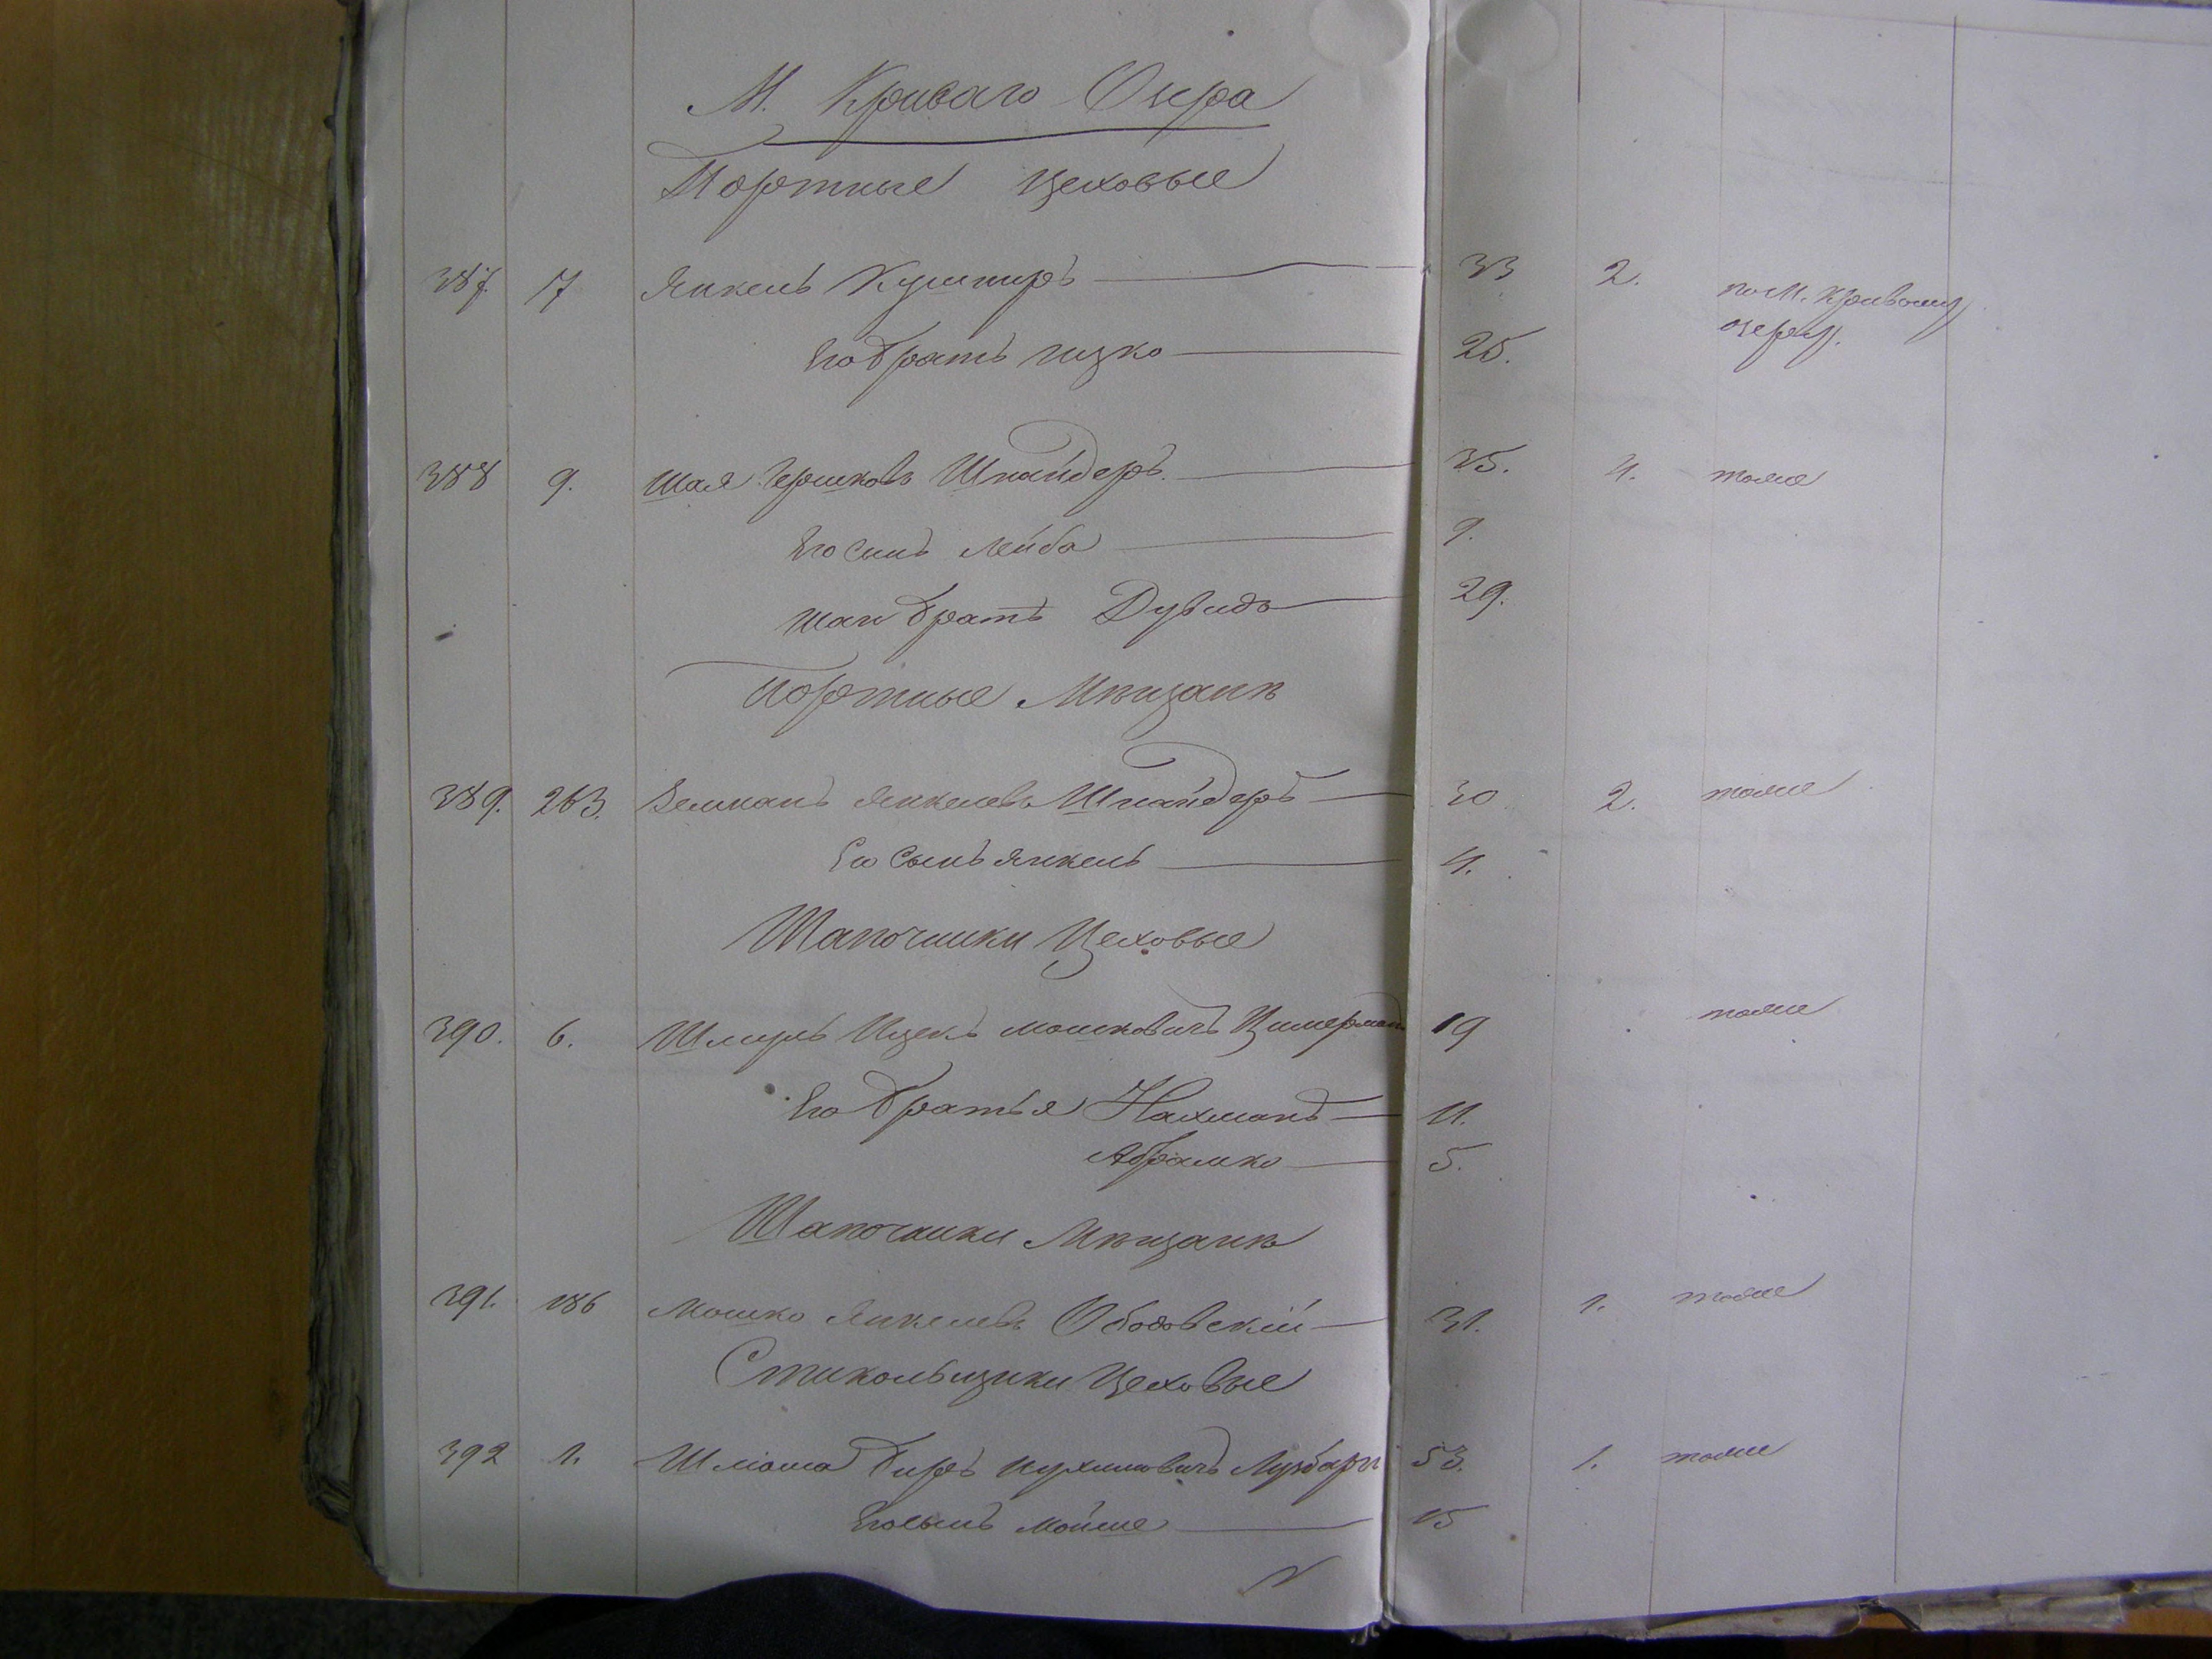 М. Криваго Озера
Портные Цеховые
387. 17 Янкель Кушниръ 33 2. по М. Кривому
озеру.
Его братъ Ицко 25.
388 9. Шая Гершковъ Шнайдеръ. 35. 4. тоже
Его сынъ Лейба 9.
Шаи братъ Дувидъ 29.
Портные Мѣщанѣ
389. 263. Зельманъ Янкелевъ Шнайдеръ 30 2. тоже
Его Сынъ Янкель 4.
Шапочники Цеховые
390. 6. Шмуль Ицекъ Мошковичъ Цимерманъ 19 тоже
Его братья Нахманъ 11.
Абрамко 5.
Шапочники Мѣщанѣ
391. 186 Мошко Янкелевъ Ободовскій 31. 1. тоже
Стикольщики Цеховые
392 1. Шліома Беръ 53. 1. тоже
Его сынъ Мойше 15